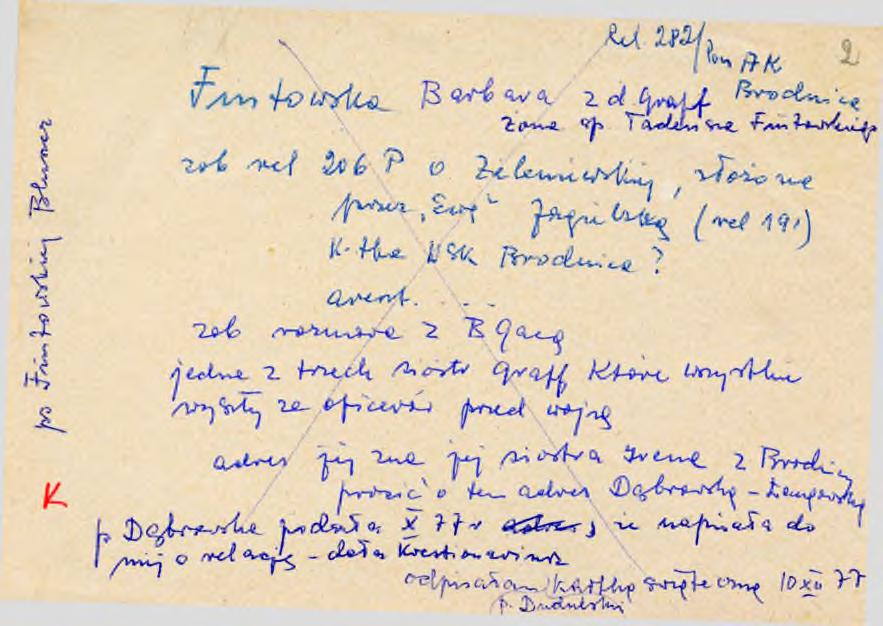 Rel. 282/Pom AK 2
Fintowska Barbara z d. Graff Brodnica
żona śp. Tadeusza Fintowskiego
zob rel 206 P o Zieleniewskiej, złożone
przez "Ewę" Jagielską (rel 191)
K-tka WSK Brodnica?
arent. . . .
zob rozmowa z B Gacą
jedna z trzech sióstr Graff które wszystkie
wyszły za oficerów przed wojną
adres jej zna jej siostra Irena z Brodnicy
prosić o ten adres Dąbrowską -
p Dąbrowska podała X 77 r adres, że napisała do
niej o relację - dała kwestionariusz
odpisałam kartkę świąteczną 10 XII 77
p. Dudulski
po Fintowskiej Blumer
K